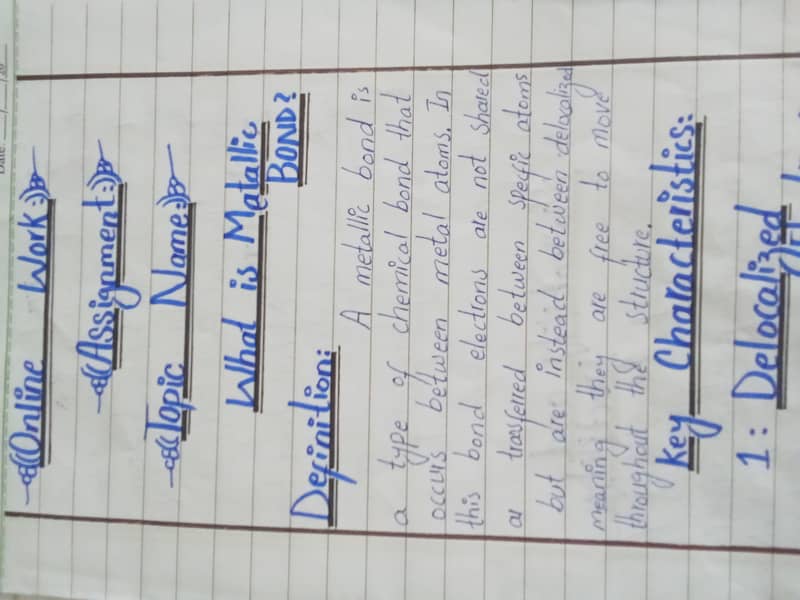 Date: __/__/20
Online Work:
Assignment:
Topic Name:
What is Metallic
BOND?
Definition:
A metallic bond is
a type of chemical bond that
occurs between metal atoms. In
this bond electrons are not shared
or trasferred between specific atoms
but are instead between delocalized
meaning they are free to move
throughout the structure.
Key Characteristics:
1: Delocalized